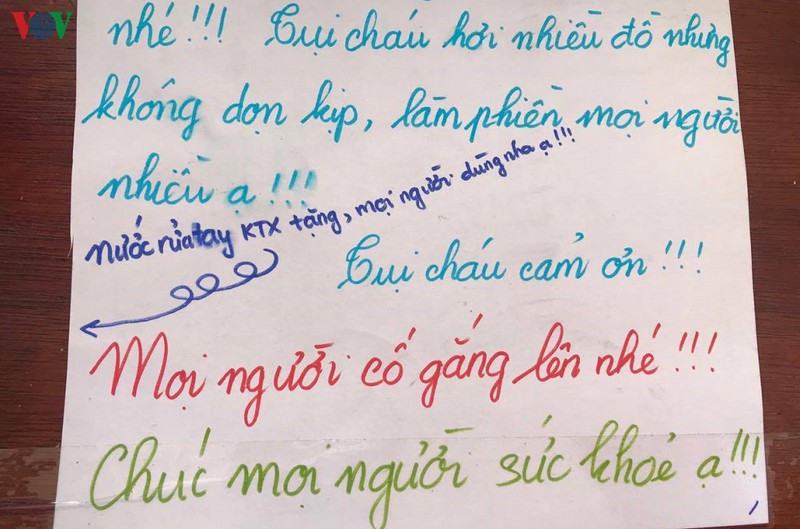 VOV
nhé!!! Tụi cháu hơi nhiều đồ nhưng
không dọn kịp, làm phiền mọi người
nhiều ạ!!!
Nước rửa tay KTX tặng, mọi người dùng nha ạ!!!
Tụi cháu cảm ơn!!!
Mọi người cố gắng lên nhé!!!
Chúc mọi người sức khoẻ ạ!!!